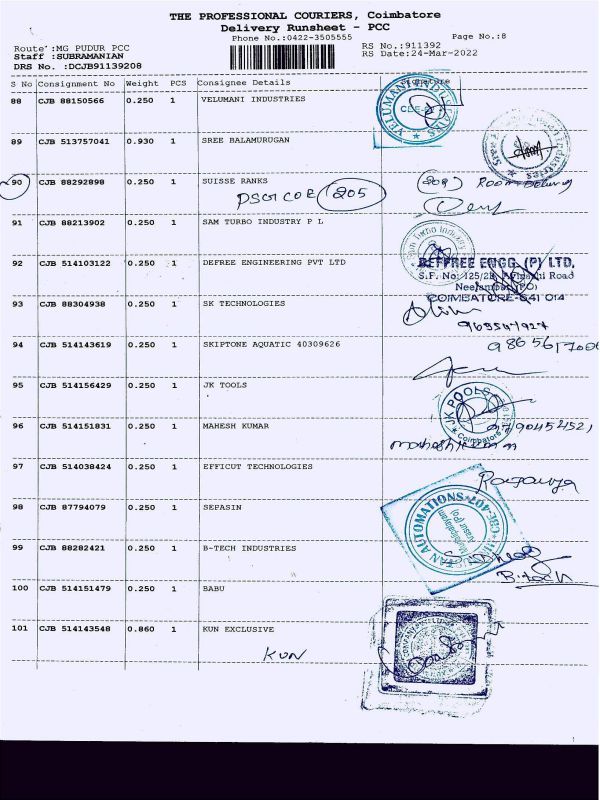 THE PROFESSIONAL COURIERS, Coimbatore
Delivery Runsheet - PCC
Phone No.:0422-3505555
Page No.:8
Route :MG PUDUR PCC
RS No.:911392
Staff :SUBRAMANIAN
RS Date:24-Mar-2022
DRS No. :DCJB91139208
S No Consignment No Weight PCS Consignee Details Signature
88 CJB 88150566 0.250 1 VELUMANI INDUSTRIES
VELUMANI INDUSTRIES
89 CJB 513757041 0.930 1 SREE BALAMURUGAN
90 CJB 88292898 0.250 1 SUISSE RANKS
205
91 CJB 88213902 0.250 1 SAM TURBO INDUSTRY P L
Sam Turbo Industry
92 CJB 514103122 0.250 1 DEFREE ENGINEERING PVT LTD
DEFFREE ENGG. (P) LTD,
S.F. No. 125/2B, Avinashi Road
Neelambur (PO)
COIMBATORE-641 014
93 CJB 88304938 0.250 1 SK TECHNOLOGIES
94 CJB 514143619 0.250 1 SKIPTONE AQUATIC 40309626
95 CJB 514156429 0.250 1 JK TOOLS
JK POOLS
Coimbatore
96 CJB 514151831 0.250 1 MAHESH KUMAR
97 CJB 514038424 0.250 1 EFFICUT TECHNOLOGIES
98 CJB 87794079 0.250 1 SEPASIN
AUTOMATIONS
99 CJB 88282421 0.250 1 B-TECH INDUSTRIES
B.tech
100 CJB 514151479 0.250 1 BABU
101 CJB 514143548 0.860 1 KUN EXCLUSIVE
KUN